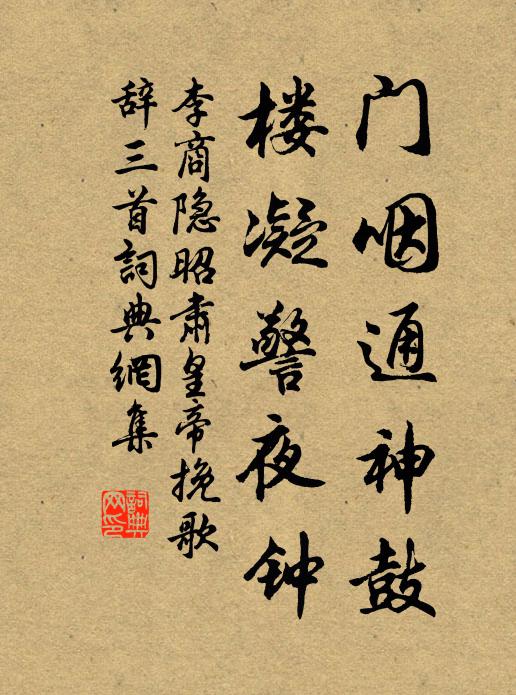 门咽通神鼓
楼凝警夜钟
李商隐昭肃皇帝挽歌
辞三首詞典網集
詞典
网印